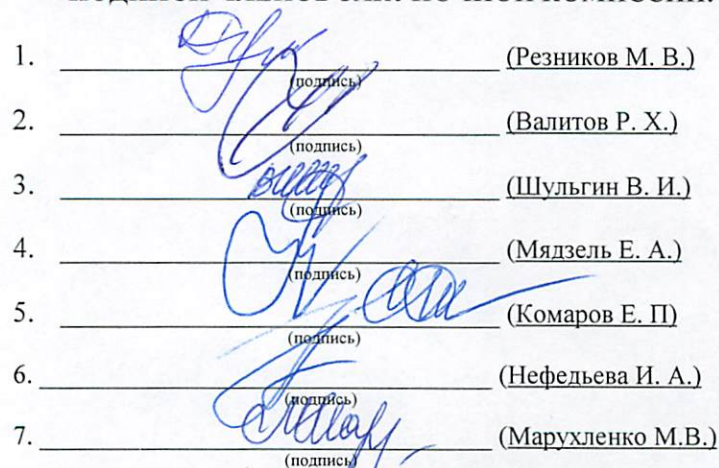 1. (Резников М. В.)
(подпись)
2. (Валитов Р. Х.)
(подпись)
3. (Шульгин В. И.)
(подпись)
4. (Мядзель Е. А.)
(подпись)
5. (Комаров Е. П)
(подпись)
6. (Нефедьева И. А.)
(подпись)
7. (Марухленко М.В.)
(подпись)